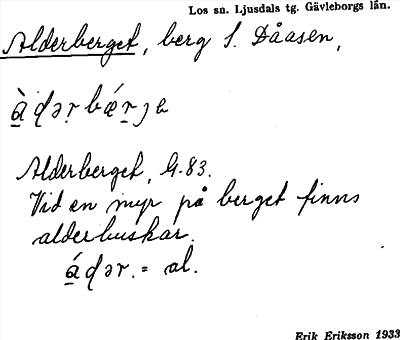 Los sn. Ljusdals tg. Gävleborgs län.
Alderberget, berg S. Dåasen,
Alderberget, G.83.
Vid en myr på berget finns
alderbuskar.
= al.
Erik Eriksson 1933